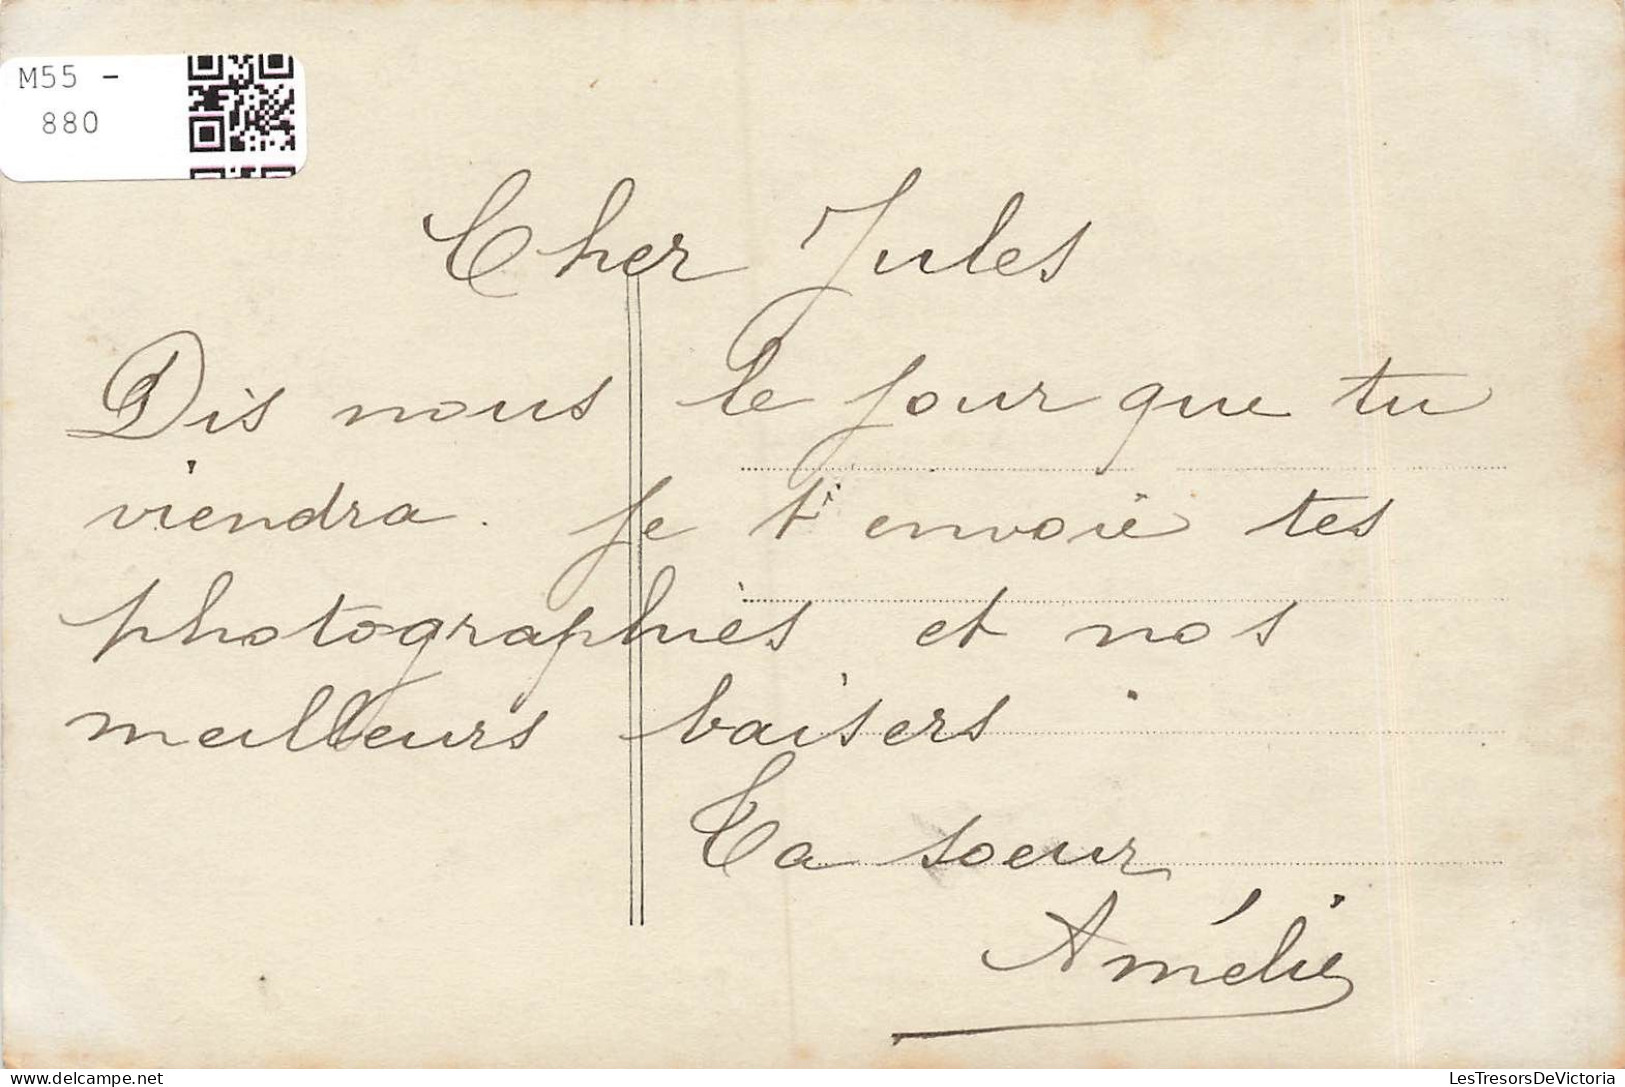 M55 -
880
Cher Jules
Dis nous le jour que tu
viendra. Je t'envoie tes
photographies et nos
meilleurs baisers
Ta soeur
Amélie
delcampe.net
LesTresorsDeVictoria